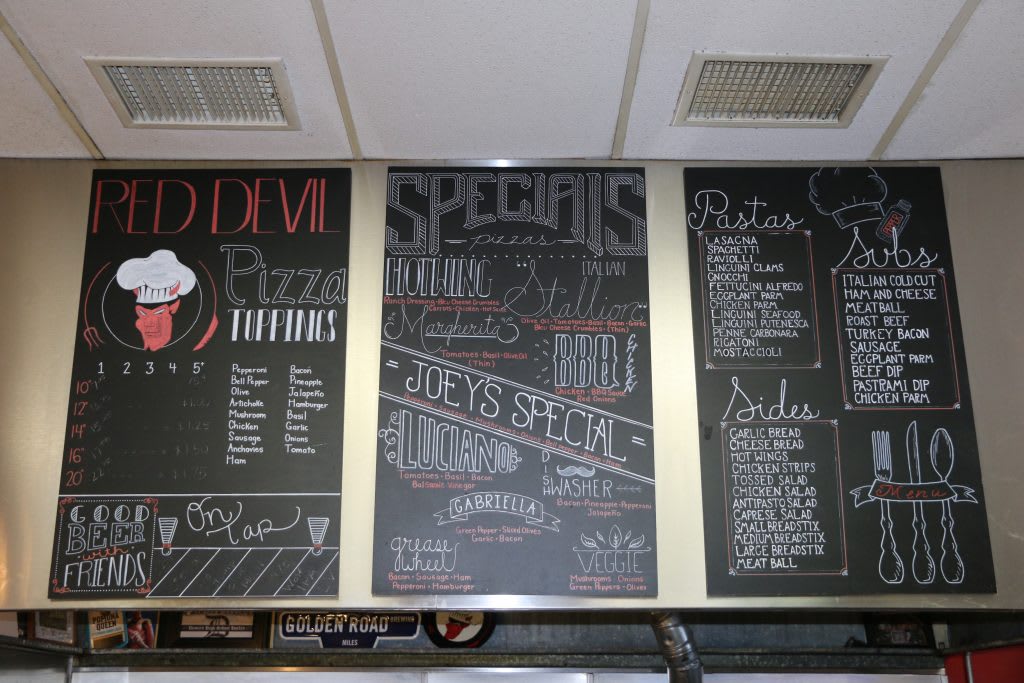 RED DEVIL
Pizza
TOPPINGS
1 2 3 4 5+
10"
12"
14"
16"
20"
Pepperoni
Bell Pepper
Olive
Artichoke
Mushroom
Chicken
Sausage
Anchovies
Ham
Bacon
Pineapple
Jalapeño
Hamburger
Basil
Garlic
Onions
Tomato
GOOD
BEER
with
FRIENDS
On Tap
SPECIALS
pizzas
HOTWING
Ranch Dressing • Bleu Cheese Crumbles
Carrots • Chicken • Hot Sauce
ITALIAN
Stallion
Olive Oil • Tomatoes • Basil • Bacon • Garlic
Bleu Cheese Crumbles • (Thin)
Margherita
Tomatoes • Basil • Olive Oil
(Thin)
BBQ
CHICKEN
Chicken • BBQ Sauce
Red Onions
JOEY'S SPECIAL
Pepperoni • Sausage • Mushrooms • Onions • Bell Pepper • Bacon • Ham
LUCIANO
Tomatoes • Basil • Bacon
Balsamic Vinegar
DISH
WASHER
Bacon • Pineapple • Pepperoni
Jalapeño
GABRIELLA
Green Pepper • Sliced Olives
Garlic • Bacon
grease
wheel
Bacon • Sausage • Ham
Pepperoni • Hamburger
VEGGIE
Mushrooms Onions
Green Peppers • Olives
Pastas
LASAGNA
SPAGHETTI
RAVIOLLI
LINGUINI CLAMS
GNOCCHI
FETTUCINI ALFREDO
EGGPLANT PARM
CHICKEN PARM
LINGUINI SEAFOOD
LINGUINI PUTENESCA
PENNE CARBONARA
RIGATONI
MOSTACCIOLI
Subs
ITALIAN COLD CUT
HAM AND CHEESE
MEATBALL
ROAST BEEF
TURKEY BACON
SAUSAGE
EGGPLANT PARM
BEEF DIP
PASTRAMI DIP
CHICKEN PARM
Sides
GARLIC BREAD
CHEESE BREAD
HOT WINGS
CHICKEN STRIPS
TOSSED SALAD
CHICKEN SALAD
ANTIPASTO SALAD
CAPRESE SALAD
SMALL BREADSTIX
MEDIUM BREADSTIX
LARGE BREADSTIX
MEAT BALL
Menu
POMONA
QUEEN
GOLDEN ROAD
BREWING
MILES